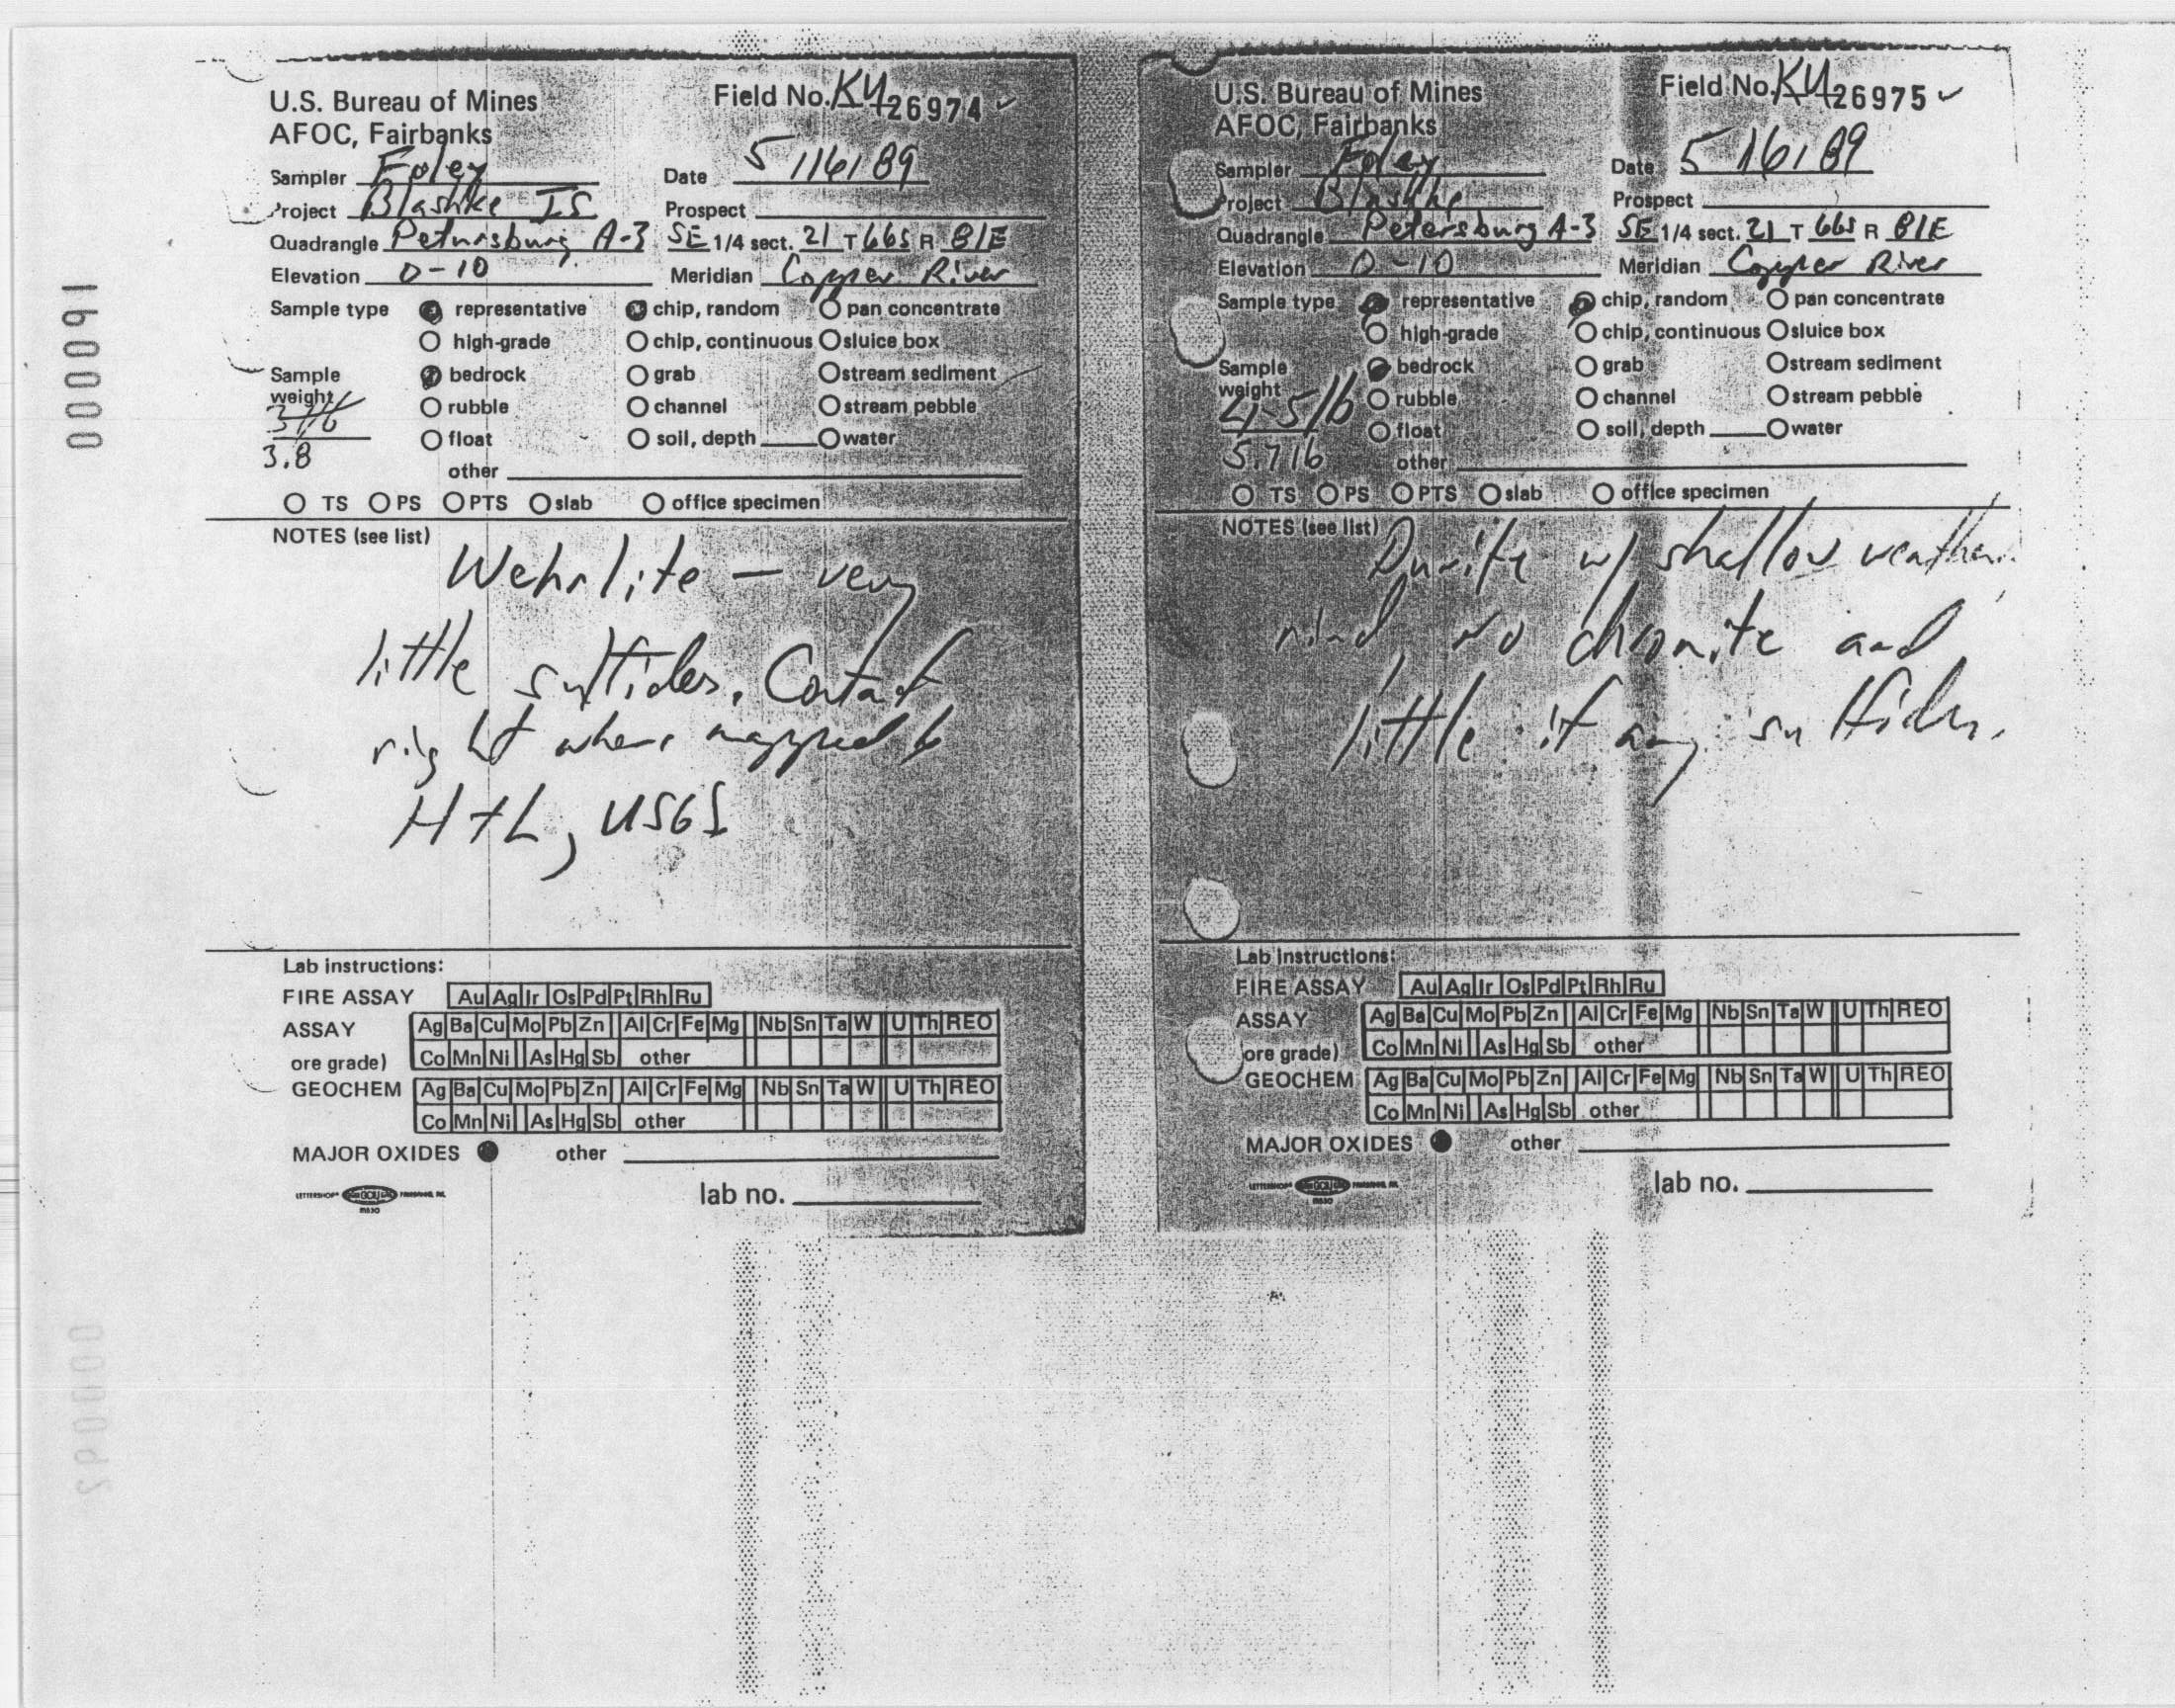 U.S. Bureau of Mines Field No. KY 26974 ✓
AFOC, Fairbanks
Sampler Foley Date 5/16/89
Project Blashke IS Prospect
Quadrangle Petersburg A-3 SE 1/4 sect. 21 T 66S R 81E
Elevation 0-10 Meridian Copper River
Sample type ● representative ● chip, random ○ pan concentrate
○ high-grade ○ chip, continuous ○ sluice box
Sample ● bedrock ○ grab ○ stream sediment
weight ○ rubble ○ channel ○ stream pebble
3 lb ○ float ○ soil, depth ○ water
3.8 other
○ TS ○ PS ○ PTS ○ slab ○ office specimen
NOTES (see list)
Wehrlite — very
little sulfides. Contact
right where mapped b
H+L, USGS
Lab instructions:
FIRE ASSAY Au Ag Ir Os Pd Pt Rh Ru
ASSAY Ag Ba Cu Mo Pb Zn Al Cr Fe Mg Nb Sn Ta W U Th REO
ore grade) Co Mn Ni As Hg Sb other
GEOCHEM Ag Ba Cu Mo Pb Zn Al Cr Fe Mg Nb Sn Ta W U Th REO
Co Mn Ni As Hg Sb other
MAJOR OXIDES ● other
LETTERSHOP GCIU
lab no.
U.S. Bureau of Mines Field No. KY 26975 ✓
AFOC, Fairbanks
Sampler Foley Date 5/16/89
Project Blashke Prospect
Quadrangle Petersburg A-3 SE 1/4 sect. 21 T 66S R 81E
Elevation 0-10 Meridian Copper River
Sample type ● representative ● chip, random ○ pan concentrate
○ high-grade ○ chip, continuous ○ sluice box
Sample ● bedrock ○ grab ○ stream sediment
weight ○ rubble ○ channel ○ stream pebble
4-5 lb ○ float ○ soil, depth ○ water
5.7 lb other
○ TS ○ PS ○ PTS ○ slab ○ office specimen
NOTES (see list)
Dunite w/ shallow weather
rind, no chromite and
little if any sulfides.
Lab instructions:
FIRE ASSAY Au Ag Ir Os Pd Pt Rh Ru
ASSAY Ag Ba Cu Mo Pb Zn Al Cr Fe Mg Nb Sn Ta W U Th REO
ore grade) Co Mn Ni As Hg Sb other
GEOCHEM Ag Ba Cu Mo Pb Zn Al Cr Fe Mg Nb Sn Ta W U Th REO
Co Mn Ni As Hg Sb other
MAJOR OXIDES ● other
LETTERSHOP GCIU
lab no.
000091
000092